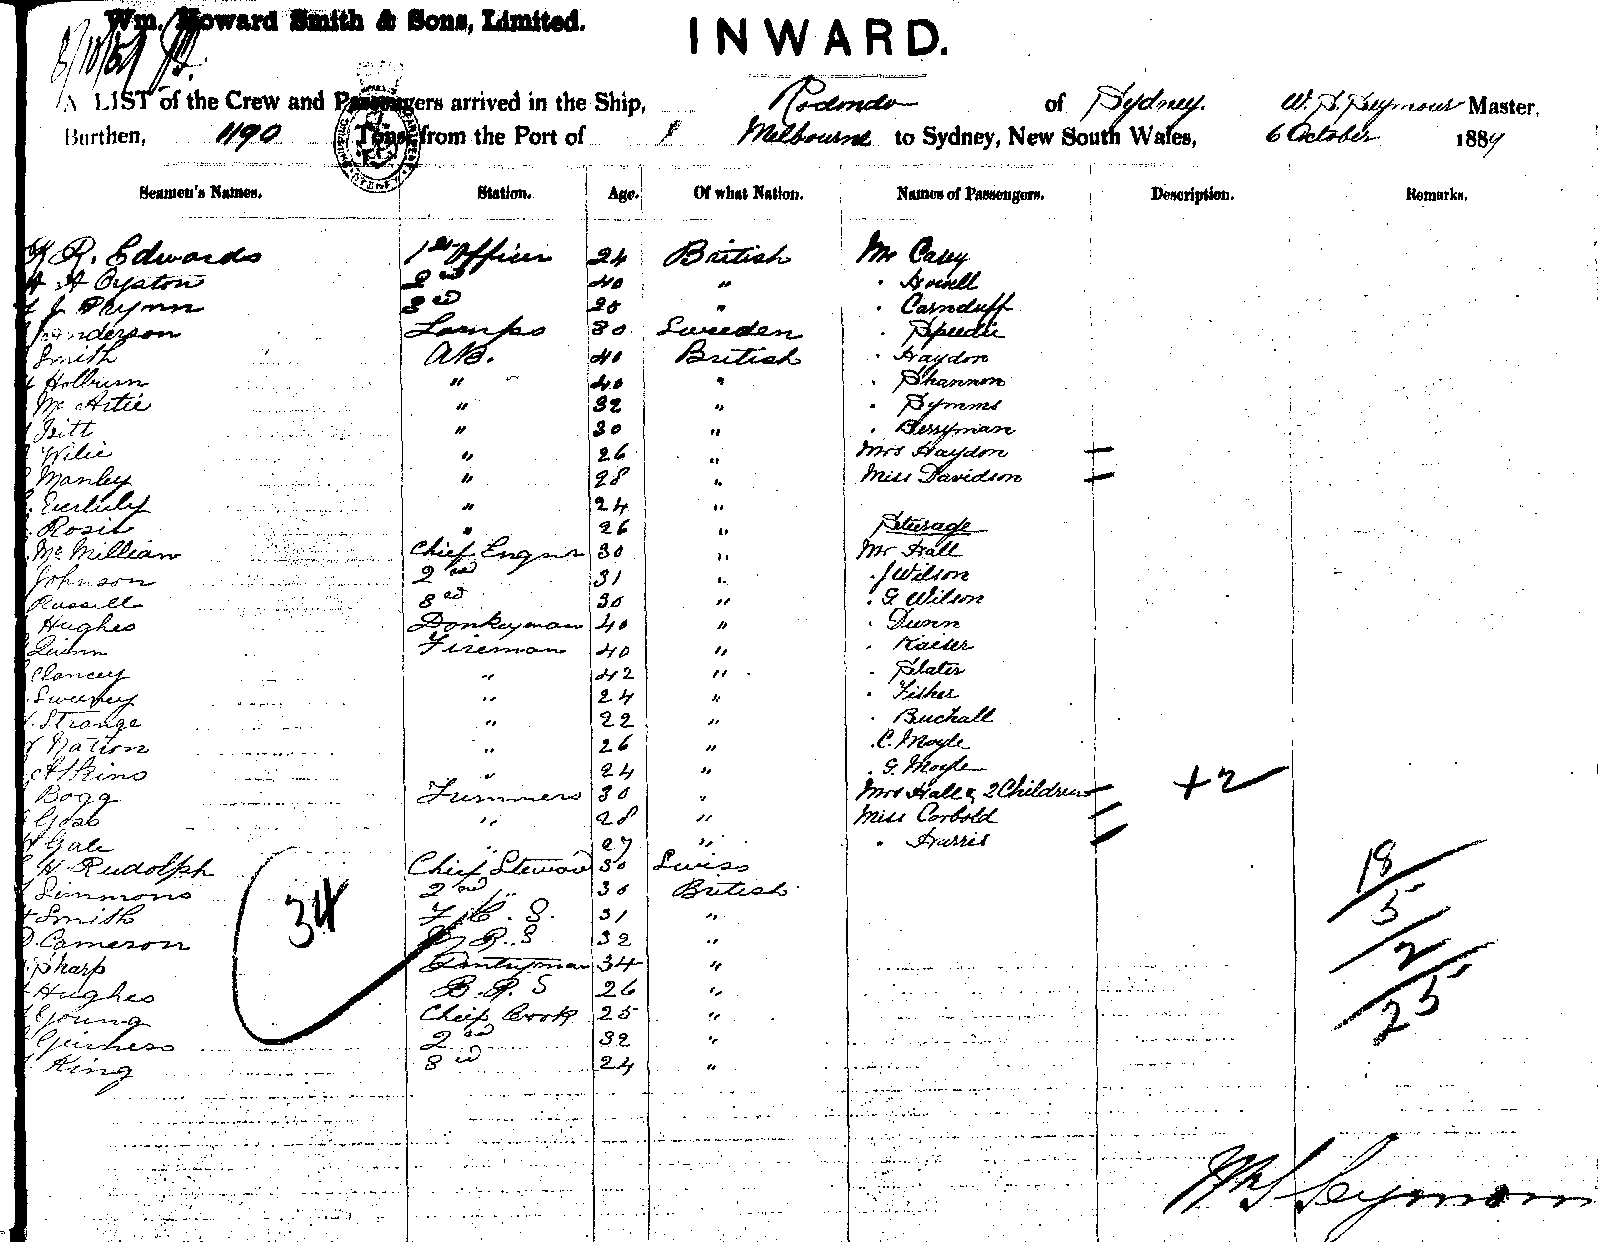 Wm. Howard Smith & Sons, Limited.
INWARD.
A LIST of the Crew and Passengers arrived in the Ship, Rodondo of Sydney. W. S. Seymour Master,
Burthen, 1190 Tons from the Port of Melbourne to Sydney, New South Wales, 6 October 1884
Seamen's Names. Station. Age. Of what Nation. Names of Passengers. Description. Remarks.
R. Edwards 1st Officer 24 British Mr Casey
A Oyston 2nd 40 " " Howell
J. 3rd " " Carnduff
Anderson Lamps 30 Sweden " Speedie
Smith AB. 40 British " Haydon
Holburn " 40 " " Shannon
Mc Artie " 32 " " Symms
" 30 " " Berryman
Wilie " 26 " Mrs Haydon
Manley " 28 " Miss Davidson
" 24 "
Rosie " 26 " Steerage
Mc Millian Chief Engnr 30 " Mr Hall
Johnson 2nd 31 " " J Wilson
Russell 3rd 30 " " G. Wilson
Hughes Donkeyman 40 " " Dunn
Quinn Fireman 40 " " Kaiser
Clancey " 42 " " Slater
Sweeney " 24 " " Fisher
Strange " 22 " " Buchall
Nation " 26 " " C. Moyle
Atkins " 24 " " G. Moyle
Bogg Trimmers 30 " Mrs Hall & 2 Children +2
Goss " 28 " Miss Corbold
Gale " 27 " " Harris
H Rudolph Chief Steward 30 Swiss 18
Simmons 2nd " 30 British 5
Smith F. C. S. 31 "
Cameron 34 R. S 32 " 2
Sharp Pantryman 34 "
Hughes B. R. S 26 " 25
Young Chief Cook 25 "
Guiness 2nd 32 "
King 3rd 24 "
Wm S Seymour